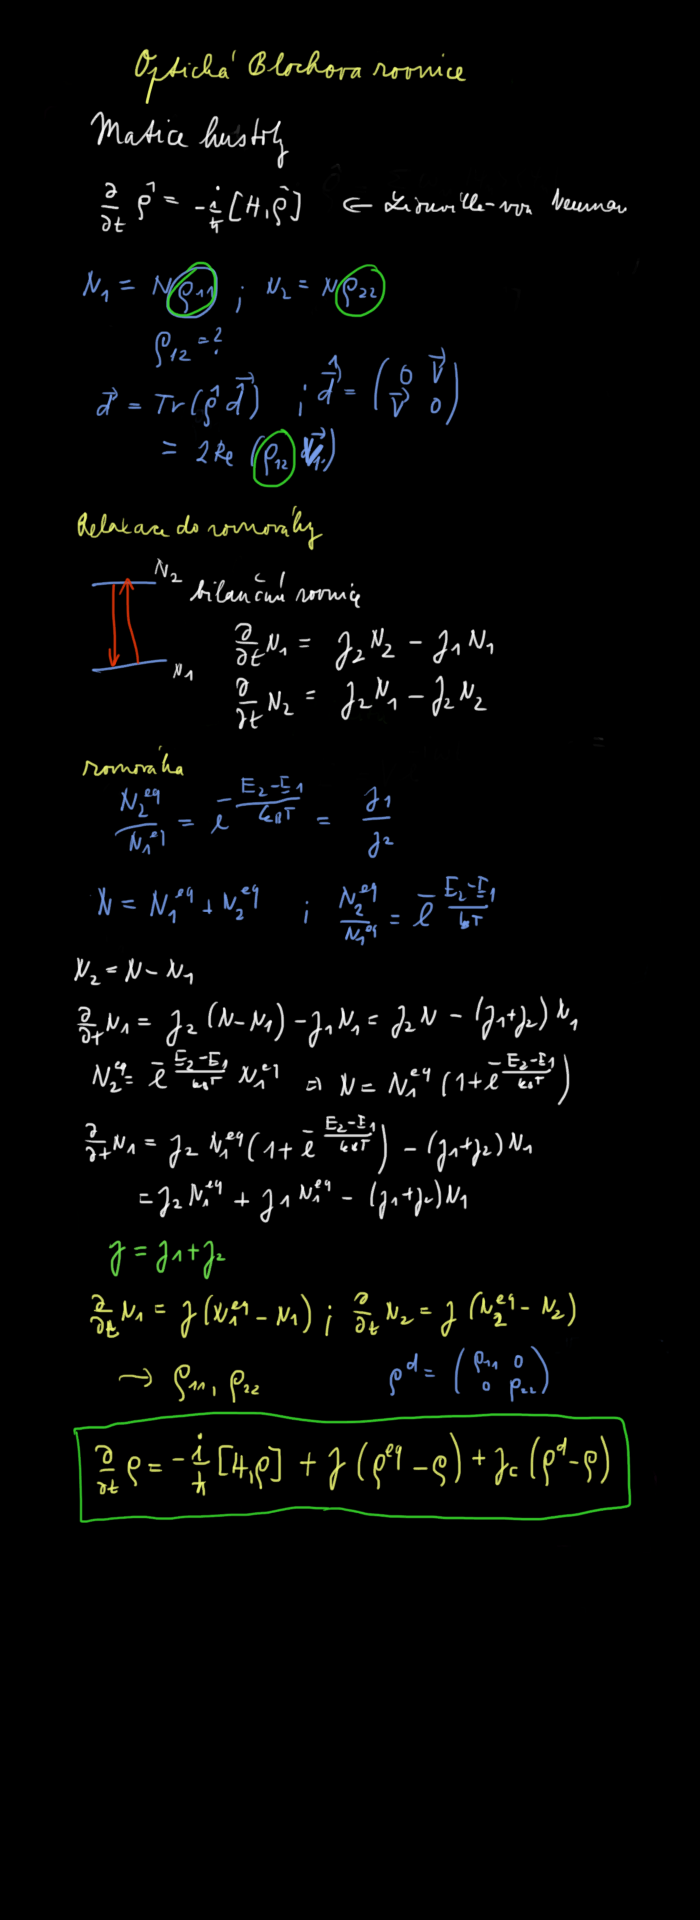 Optická Blochova rovnice
Matice hustoty
∂/∂t ρ̂ = -i/ħ [H,ρ̂] ← Liouville-von Neuman
N₁ = Nρ₁₁ ; N₂ = Nρ₂₂
ρ₁₂ = ?
d⃗ = Tr(ρ̂ d⃗) ; d̂⃗ = (0 V⃗ / V⃗ 0)
= 2Re (ρ₁₂ V⃗)
Relaxace do rovnováhy
N₂
bilanční rovnice
N₁
∂/∂t N₁ = γ₂N₂ - γ₁N₁
∂/∂t N₂ = γ₂N₁ - γ₂N₂
rovnováha
N₂^eq/N₁^eq = e^(-(E₂-E₁)/(k_BT)) = γ₁/γ₂
N = N₁^eq + N₂^eq ; N₂^eq/N₁^eq = e^(-(E₂-E₁)/(k_BT))
N₂ = N - N₁
∂/∂t N₁ = γ₂ (N-N₁) - γ₁N₁ = γ₂N - (γ₁+γ₂)N₁
N₂^eq = e^(-(E₂-E₁)/(k_BT)) N₁^eq ⇒ N = N₁^eq (1+e^(-(E₂-E₁)/(k_BT)))
∂/∂t N₁ = γ₂ N₁^eq (1+ e^(-(E₂-E₁)/(k_BT))) - (γ₁+γ₂)N₁
= γ₂N₁^eq + γ₁N₁^eq - (γ₁+γ₂)N₁
γ = γ₁+γ₂
∂/∂t N₁ = γ(N₁^eq - N₁) ; ∂/∂t N₂ = γ (N₂^eq - N₂)
→ ρ₁₁, ρ₂₂ ρ^d = (ρ₁₁ 0 / 0 ρ₂₂)
∂/∂t ρ = -i/ħ [H,ρ] + γ (ρ^eq - ρ) + γ_c (ρ^d - ρ)